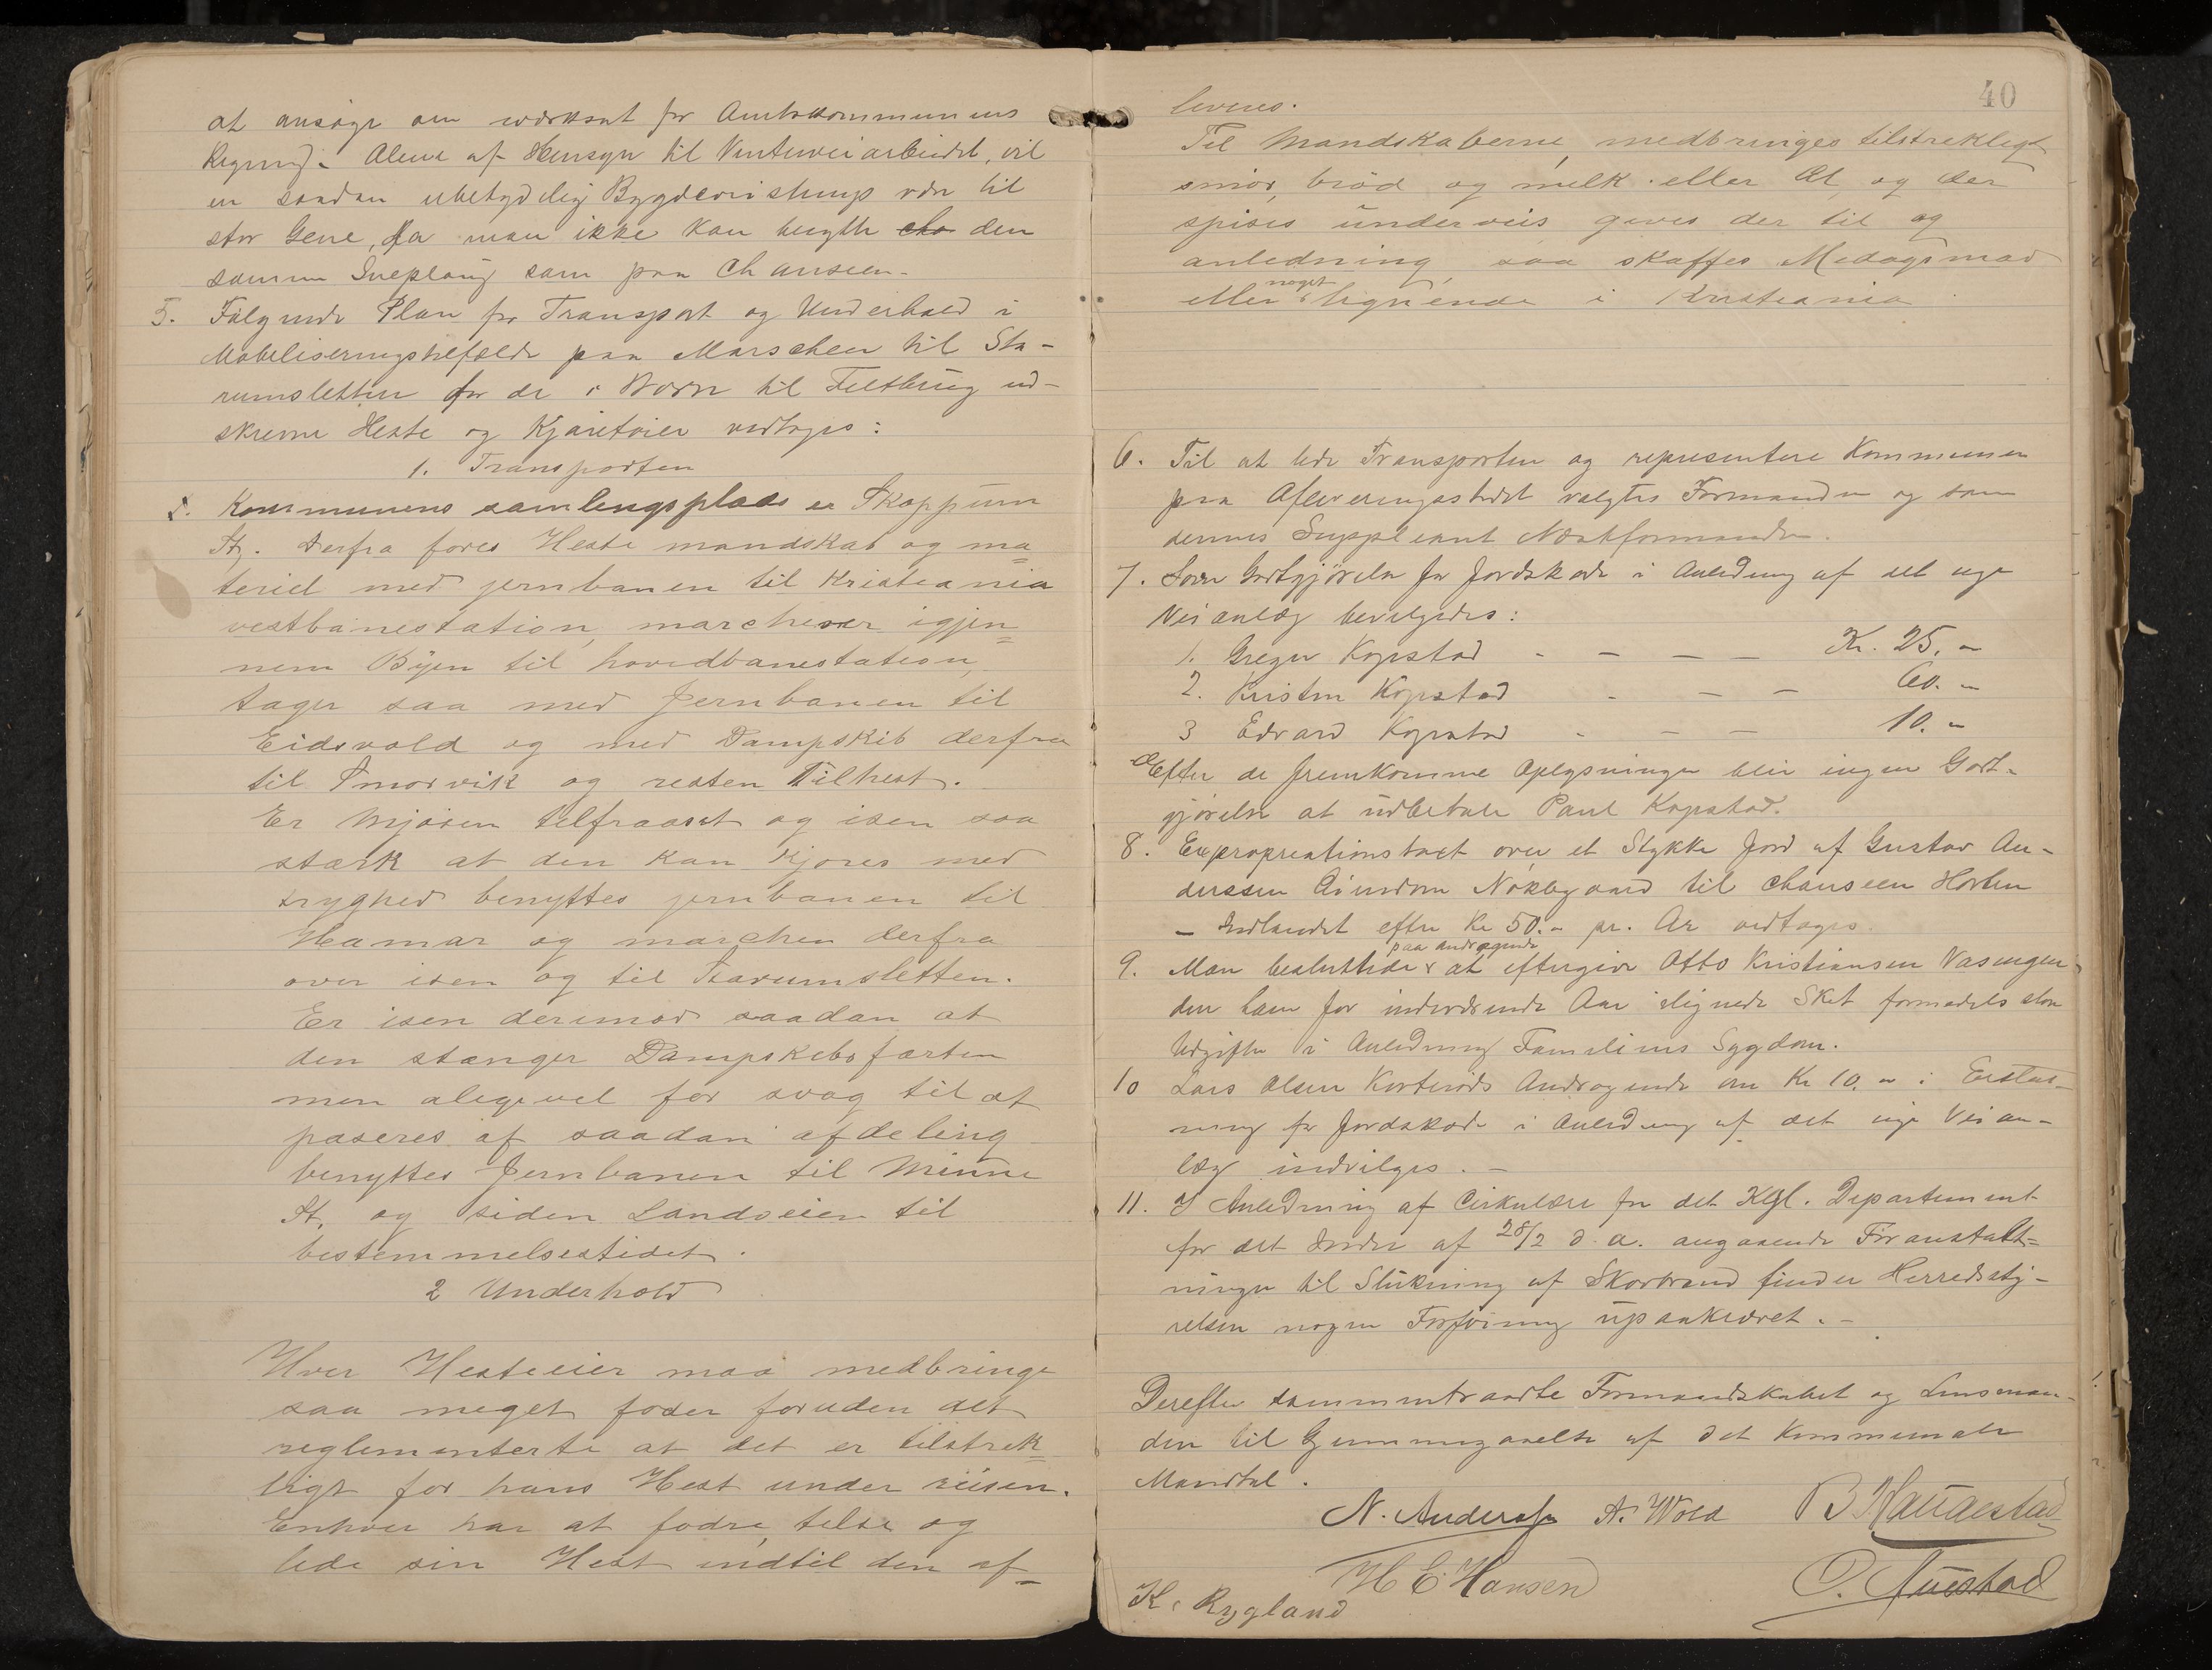 at ansøge om iværksat for Amtskommunens
Regning. Alene af Hensyn til Vinterveiarbeidet, vil
en saadan ubetydelig Bygdeveistump være til
stor Gene, da man ikke kan benytte cha den
samme Sneploug som paa Chauseen.
5. Følgende Plan for Transport og Underhold i
Mobiliseringstilfælde paa Marschen til Sta-
rumsletten for de i Borre til Feltbrug ud-
skrevne Heste og Kjøretøier vedtages:
1. Transporten
Kommunens samlingsplads er Skoppum
St. Derfra føres Heste mandskab og ma=
teriel med jernbanen til Kristiania
vestbanestation, marcherer igjen=
nem Byen til hovedbanestation,
tager saa med Jernbanen til
Eidsvold og med Dampskib derfra
til Smorvik og resten Tilhest.
Er Mjøsen tilfrosset og isen saa
stærk at den kan kjøres med
tryghed benyttes jernbanen til
Hamar og marchen derfra
over isen og til Starumsletten.
Er isen derimod saadan at
den stænger Dampskibsfarten
men aligevel for svag til at
paseres af saadan afdeling
benyttes Jernbanen til Minne
St. og siden Landveien til
bestemmelsestedet.
2 Underhold
Hver Hesteeier maa medbringe
saa meget foder foruden det
reglementerte at det er tilstrek=
ligt for hans Hest under reisen.
Enhver har at fodre, telse og
lede sin Hest indtil den af=
40
leveres.
Til Mandskaberne, medbringes tilstrekligt
smør, brød og melk eller Øl, og der
spises underveis gives der til og
anledning, saa skaffes Medagsmad
eller noget lignende i Kristiania.
6. Til at lede Transporten og representere Kommunen
paa Afleveringsstedet valgtes Formanden og som
dennes Suppleant Næstformanden.
7. Som Godtgjørelse for Jordskade i Anledning af det nye
Veianlæg bevilgedes:
1. Greger Kopstad - - - - Kr. 25.-
2. Kristen Kopstad - - - 60.-
3 Edvard Kopstad - - - 10.-
Efter de fremkomne Oplysninger blir ingen Godt-
gjørelse at udbetale Paul Kopstad.
8. Expropriationstaxt over et Stykke Jord af Gustav An-
derssen Eiendom Nøkbygaard til Chauseen Horten
- Indlandet efter Kr 50.- pr. Ar vedtoges.
9. Man besluttede paa andragende at eftergive Otto Kristiansen Vasengen
den ham for indeværende Aar ilignede Skat formedels store
Udgifter i Anledning Familiens Sygdom.
10 Lars Olsen Korterøds Andragende om Kr 10.- i Erstat-
ning for Jordskade i Anledning af det nye Veian-
læg indvilges. -
11. I Anledning af Cirkulære fra det Kgl. Departement
for det Indre af 28/2 d. a. angaaende Foranstalt=
ninger til Slukning af Skovbrand finder Herredssty-
relsen nogen Forføining upaakrævet. -
Derefter sammentraadte Formandskabet og Lensman-
den til Gjennemgaaelse af det kommunale
Mandtal.
N. Anderssen A. Wold B Haugestad
H E Hansen O. Auestad
K. Rygland